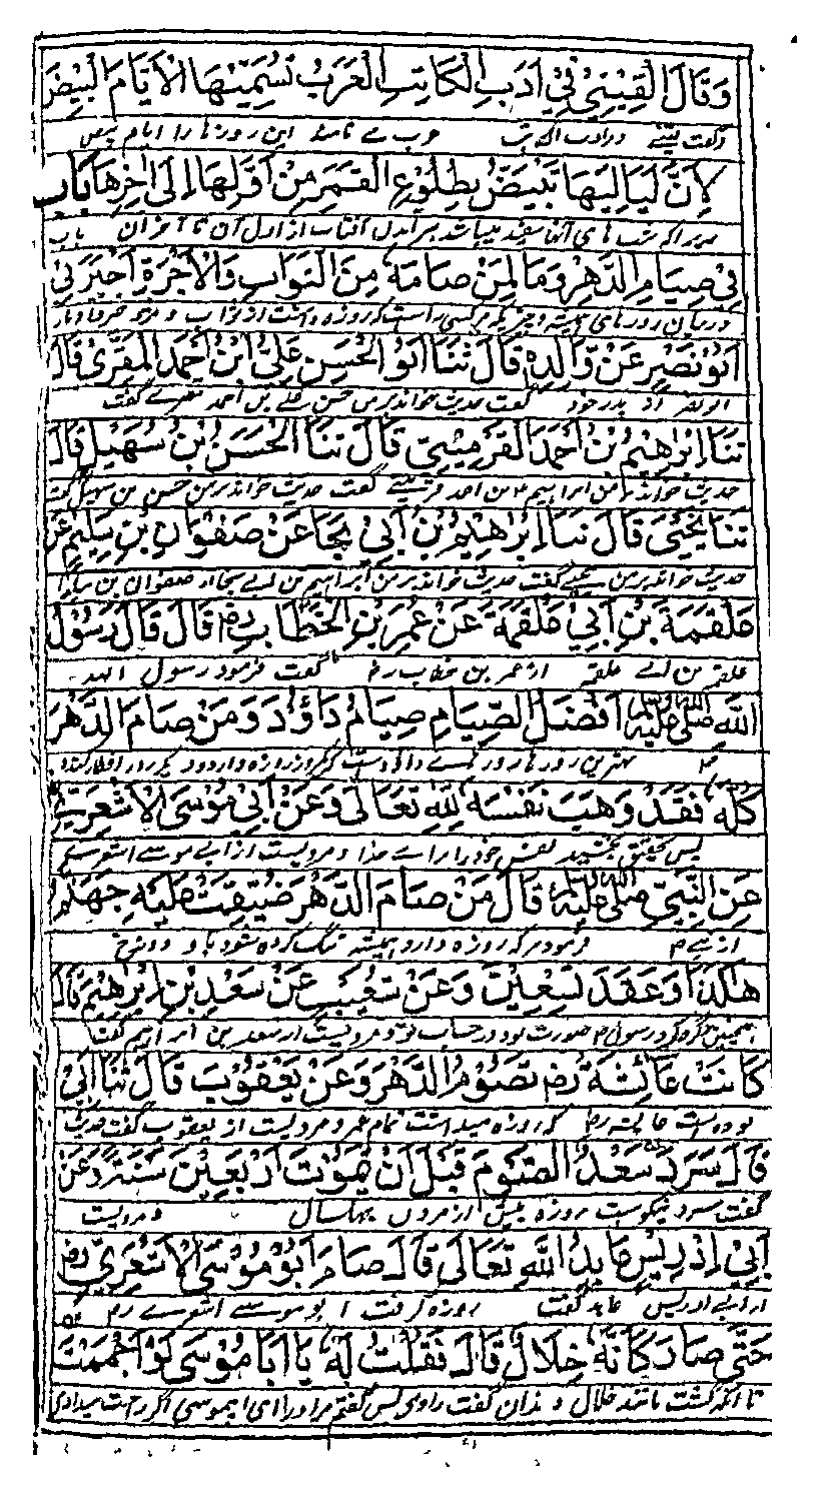 وَقَالَ الْقِيْتَبِيُّ فِيْ اَدَبِ الْكَاتِبِ الْعَرَبُ تُسَمِّيْهَا الْاَيَّامَ الْبِيْضَ
وگفت در ادب الکاتب عرب مے نامند این روزها را ایام بیض
لِاَنَّ لَيَالِيَهَا تَبْيَضُّ بِطُلُوْعِ الْقَمَرِ مِنْ اَوَّلِهَا اِلَى اٰخِرِهَا بَابٌ
زیرا که شب های آنها سفید میباشد از اول آن تا آخر آن باب
فِيْ صِيَامِ الدَّهْرِ وَمَا لِمَنْ صَامَهٗ مِنَ الثَّوَابِ وَالْاَجْرِ اَخْبَرَنِيْ
در بیان روزهای همیشه و کسی راست که روزه داشت از ثواب و مزد خبر داد
اَبُوْ نَصْرٍ عَنْ وَّالِدِهٖ قَالَ ثَنَا اَبُو الْحَسَنِ عَلِيُّ ابْنُ اَحْمَدَ الْمُقْرِيُّ قَالَ
ابونصر از پدر خود گفت حدیث خواند بر من حسن علے بن احمد مقرے گفت
ثَنَا اِبْرٰهِيْمُ بْنُ اَحْمَدَ الْقَرْمِيْسِيُّ قَالَ ثَنَا الْحَسَنُ بْنُ سُهَيْلٍ قَالَ
حدیث خواند بر من ابراهیم بن احمد گفت حدیث خواند بر من حسن بن سهیل گفت
ثَنَا يَحْيٰى قَالَ ثَنَا اِبْرٰهِيْمُ بْنُ اَبِيْ نَجَا عَنْ صَفْوَانَ بْنِ سَلِيْمٍ عَنْ
حدیث خواند بر من یحیے گفت حدیث خواند بر من ابراهیم بن ابے نجا از صفوان بن سلیم
عَلْقَمَةَ بْنِ اَبِيْ عَلْقَمَةَ عَنْ عُمَرَ بْنِ الْخَطَّابِ رض قَالَ قَالَ رَسُوْلُ
علقمه بن ابے علقمه از عمر بن خطاب رض گفت فرمود رسول الله
اللّٰهِ صَلَّى اللّٰهُ عَلَيْهِ وَسَلَّمَ اَفْضَلُ الصِّيَامِ صِيَامُ دَاوُدَ وَمَنْ صَامَ الدَّهْرَ
بهترین روزها روزه داود ست که یکروز روزه دارد و دیگر روز افطار کند
كُلَّهٗ فَقَدْ وَهَبَ نَفْسَهٗ لِلّٰهِ تَعَالٰى وَعَنْ اَبِيْ مُوْسَى الْاَشْعَرِيِّ
پس تحقیق بخشید نفس خود را براے خدا و مرویست از ابے موسے اشعرے
عَنِ النَّبِيِّ صَلَّى اللّٰهُ عَلَيْهِ وَسَلَّمَ قَالَ مَنْ صَامَ الدَّهْرَ ضُيِّقَتْ عَلَيْهِ جَهَنَّمُ
از نبے م فرمود هر که روزه دارد همیشه تنگ کرده شود باو دوزخ
هٰكَذَا وَعَقَدَ تِسْعِيْنَ وَعَنْ شُعَيْبٍ عَنْ سَعْدِ بْنِ اِبْرٰهِيْمَ قَالَ
همچنین و گره کرد رسول م صورت نود در حساب نود و مرویست از سعد بن ابراهیم گفت
كَانَتْ عَائِشَةُ رض تَصُوْمُ الدَّهْرَ وَعَنْ يَعْقُوْبَ قَالَ ثَنَا اَبِيْ
بوده است عایشه رض که روزه میداشت تمام عمر و مرویست از یعقوب گفت حدیث
قَالَ سَرَدَ سَعْدُ الصَّوْمَ قَبْلَ اَنْ يَّمُوْتَ اَرْبَعِيْنَ سَنَةً وَعَنْ
گفت روزه پیش از مردن بچهل سال و مرویست
اَبِيْ اِدْرِيْسَ عَابِدُ اللّٰهِ تَعَالٰى قَالَ صَامَ اَبُوْ مُوْسَى الْاَشْعَرِيُّ رض
از ابے ادریس عابد گفت روزه گرفت ابو موسے اشعرے رض
حَتّٰى صَارَ كَاَنَّهٗ خِلَالٌ قَالَ فَقُلْتُ لَهٗ يَا اَبَا مُوْسٰى لَوْ اَجْمَمْتَ
تا آنکه گشت مانند خلال دندان گفت راوی پس گفتم مر او را ای ابو موسی اگر راحت میدادی